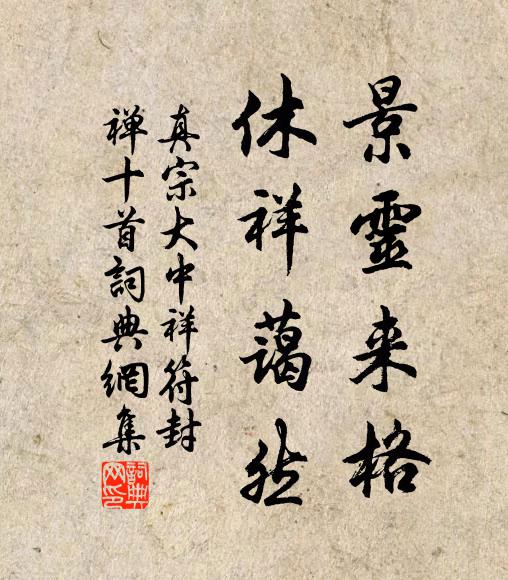 景靈来格
休祥藹然
真宗大中祥符封
禅十首詞典網集
詞典網印